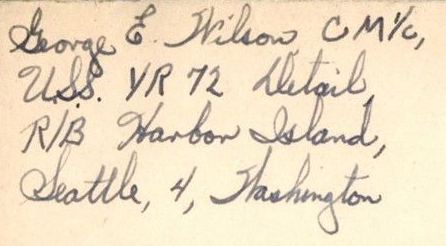 George E. Wilson, CM1/c,
U.S.S. YR 72 Detail,
R/B Harbor Island,
Seattle, 4, Washington